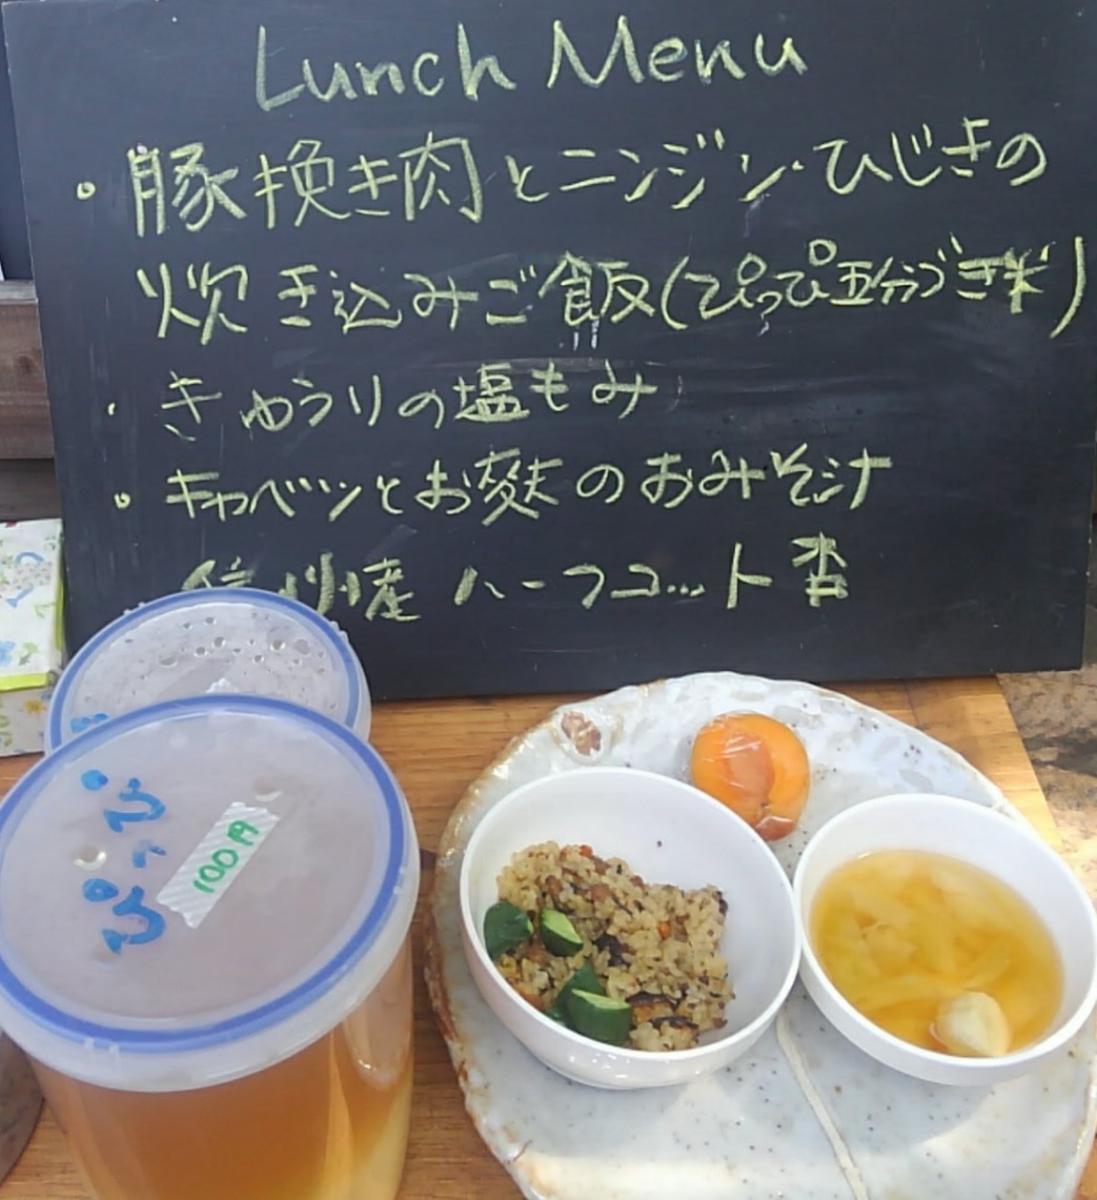 Lunch Menu
・豚挽き肉とニンジン・ひじきの
炊き込みご飯(ぴっぴ五分づき米)
・きゅうりの塩もみ
・キャベツとお麩のおみそ汁
信州産ハーフコット杏
ぴっぴ
100円